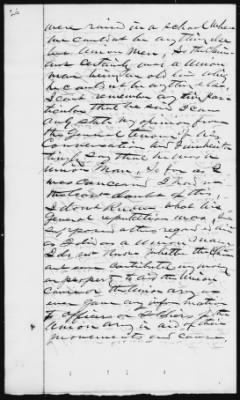 were raised in a school where
we couldnt be anything else
but Union Men, So the Claim
ant certainly was a Union
man being an old line Whig
he couldnt be anything else,
I cant remember any thing par
ticular that he said I can
only state my opinion from
the General tenor of his
Conversation and I unhesita
tingly Say that he was a
Union Man, So far as I
was concerned I had
no doubt of this,
I dont Know what his
General reputation was, I
supposed others regarded him
as I did as a Union Man
I do not Know whether the Claim
ant ever contributed any money
or property to aid the Union
Cause or the Union army or
ever gave any information
to officers or Soldiers of the
Union army in aid of their
movements or cause,